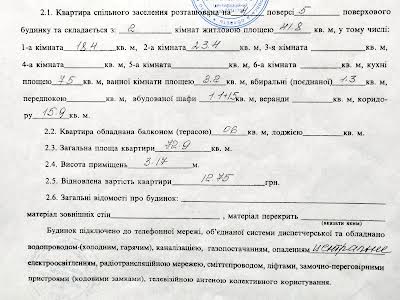 2.1. Квартира спільного заселення розташована на 4 поверсі 5 поверхового
будинку та складається з: 2 кімнат житловою площею 41.8 кв. м, у тому числі:
1-а кімната 18.4 кв. м, 2-а кімната 23.4 кв. м, 3-я кімната кв. м,
4-а кімната кв. м, 5-а кімната кв. м, 6-а кімната кв. м, кухні
площею 7.5 кв. м, ванної кімнати площею 3.2 кв. м, вбиральні (поєднаної) 1.3 кв. м,
передпокою кв. м, вбудованої шафи кв. м, веранди кв. м, коридо-
ру 15.9 кв. м.
2.2. Квартира обладнана балконом (терасою) 0.6 кв. м, лоджією кв. м.
2.3. Загальна площа квартири 72.9 кв. м.
2.4. Висота приміщень 3.17 м.
2.5. Відновлена вартість квартири 12.75 грн.
2.6. Загальні відомості про будинок:
матеріал зовнішніх стін , матеріал перекрить
(вказати яким)
Будинок підключено до телефонної мережі, об'єднаної системи диспетчерської та обладнано
водопроводом-(холодним, гарячим), каналізацією, газопостачанням, опаленням центральне
електроосвітленням, радіотрансляційною мережею, сміттєпроводом, ліфтами, замочно-переговорними
пристроями (кодовими замками), телевізійною антеною колективного користування.